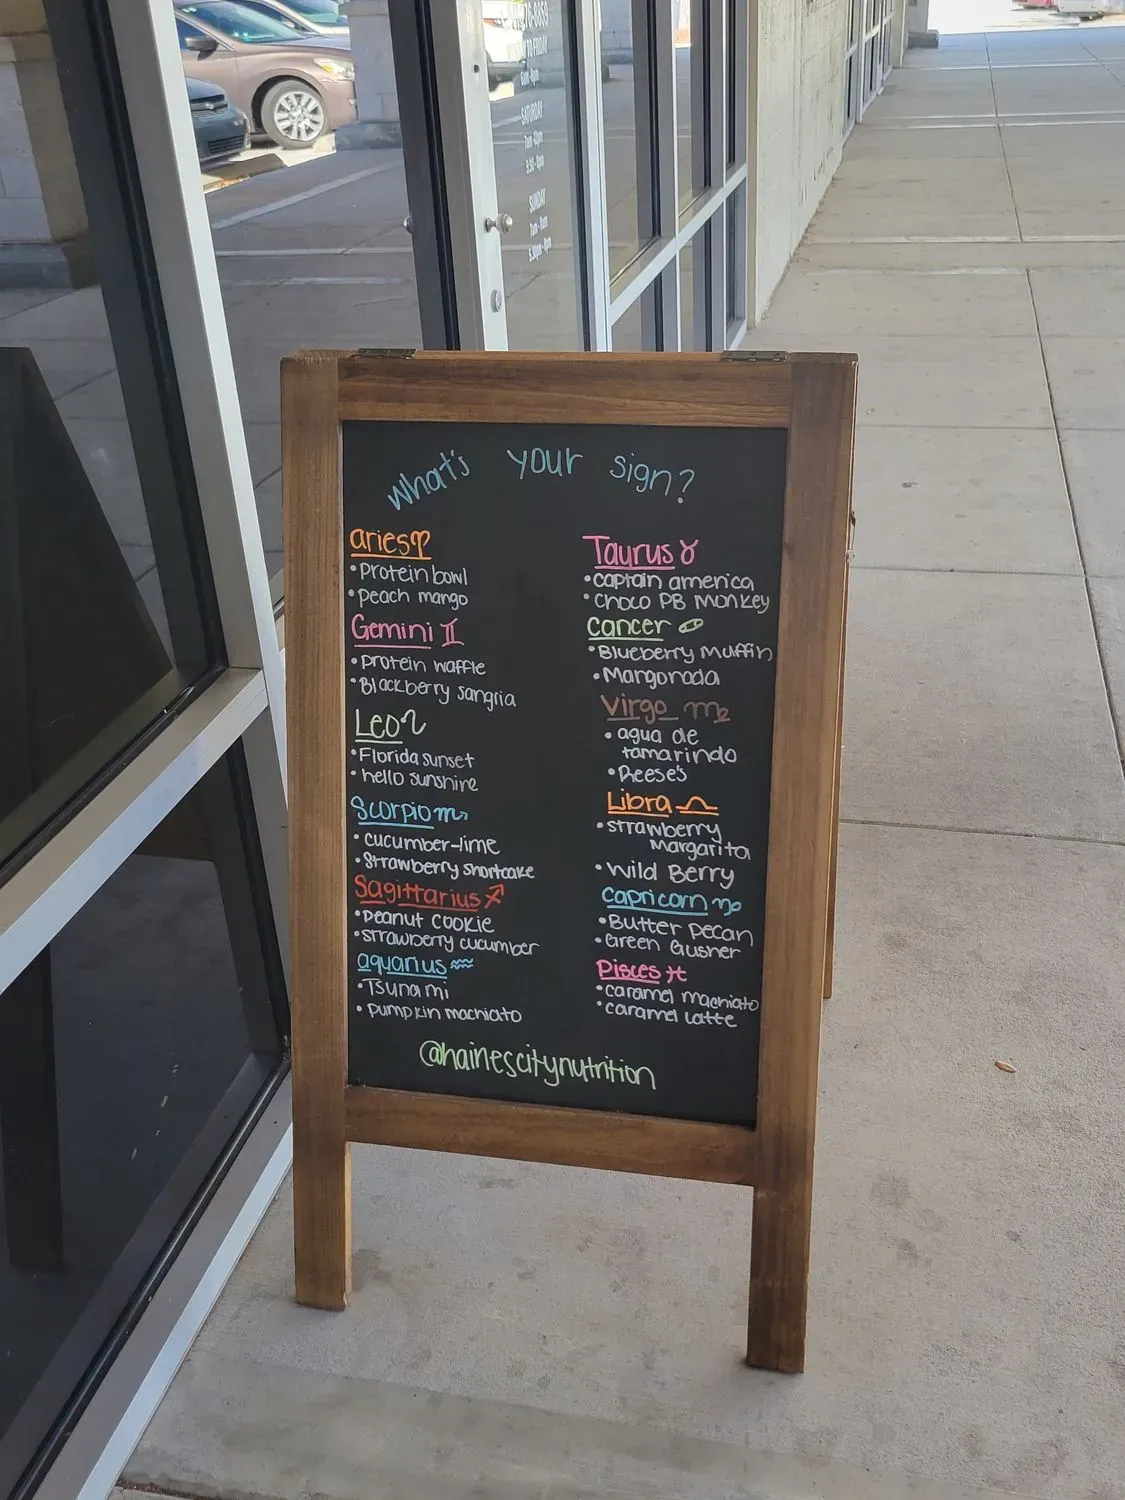 What's your sign?
aries♈
•Protein bowl
•Peach mango
Gemini ♊
•Protein waffle
•Blackberry sangria
Leo♌
•Florida sunset
•hello sunshine
Scorpio♏
•cucumber-lime
•Strawberry shortcake
Sagittarius♐
•Peanut cookie
•strawberry cucumber
aquarius♒
•Tsunami
•pumpkin machiato
Taurus♉
•captain america
•Choco PB Monkey
Cancer ♋
•Blueberry Muffin
•Mangonada
Virgo ♍
•agua de
tamarindo
•Reese's
Libra♎
•strawberry
Margarita
•Wild Berry
Capricorn♑
•Butter pecan
•Green Gusher
Pisces♓
•caramel machiato
•caramel latte
@hainescitynutrition
SATURDAY
SUNDAY